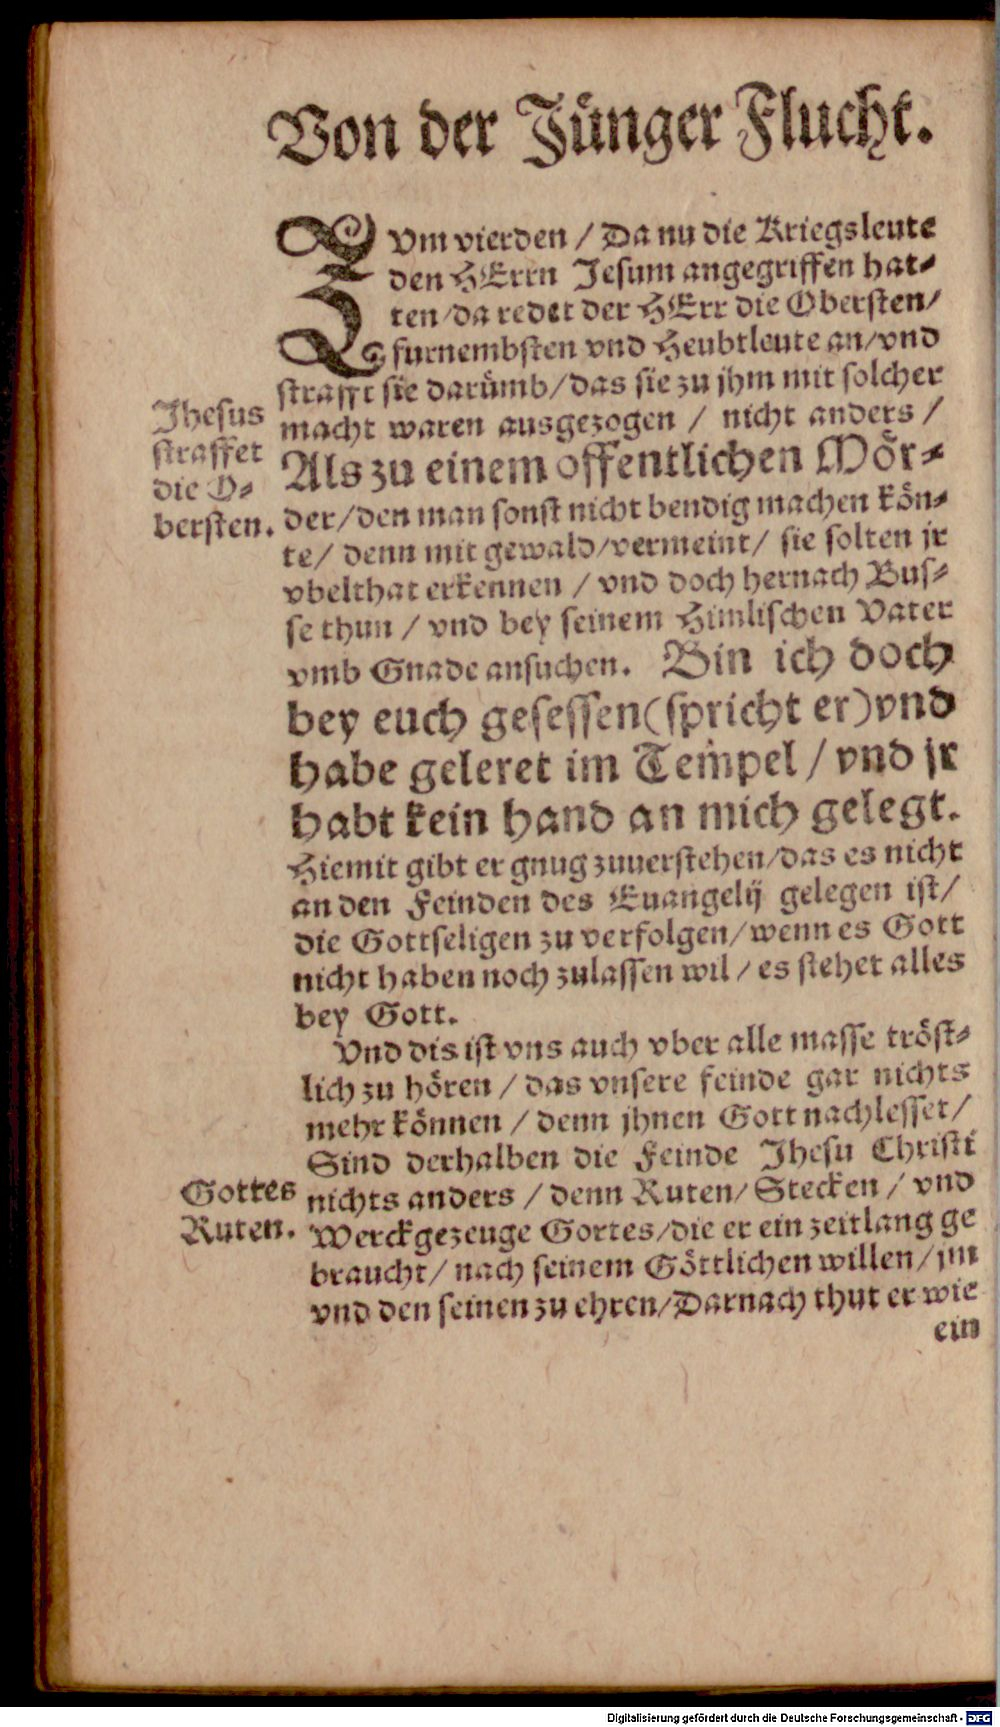 Von der Jünger Flucht.
ZVm vierden / Da nu die Kriegsleute
den HErrn Jesum angegriffen hat-
ten/da redet der HErr die Obersten/
furnembsten vnd Heubtleute an/vnd
strafft sie darümb/das sie zu jhm mit solcher
macht waren ausgezogen / nicht anders /
Als zu einem offentlichen Mör-
der/den man sonst nicht bendig machen kön-
te/ denn mit gewald/vermeint/ sie solten jr
vbelthat erkennen / vnd doch hernach Bus-
se thun / vnd bey seinem Himlischen Vater
vmb Gnade ansuchen. Bin ich doch
bey euch gesessen(spricht er)vnd
habe geleret im Tempel / vnd jr
habt kein hand an mich gelegt.
Hiemit gibt er gnug zuuerstehen/das es nicht
an den Feinden des Euangelij gelegen ist/
die Gottseligen zu verfolgen/wenn es Gott
nicht haben noch zulassen wil / es stehet alles
bey Gott.
Vnd dis ist vns auch vber alle masse tröst-
lich zu hören / das vnsere feinde gar nichts
mehr können / denn jhnen Gott nachlesset/
Sind derhalben die Feinde Jhesu Christi
nichts anders / denn Ruten/ Stecken / vnd
Werckgezeuge Gottes/die er ein zeitlang ge
braucht/ nach seinem Göttlichen willen/ jm
vnd den seinen zu ehren/Darnach thut er wie
ein
Jhesus
straffet
die O-
bersten.
Gottes
Ruten.
Digitalisierung gefördert durch die Deutsche Forschungsgemeinschaft - DFG